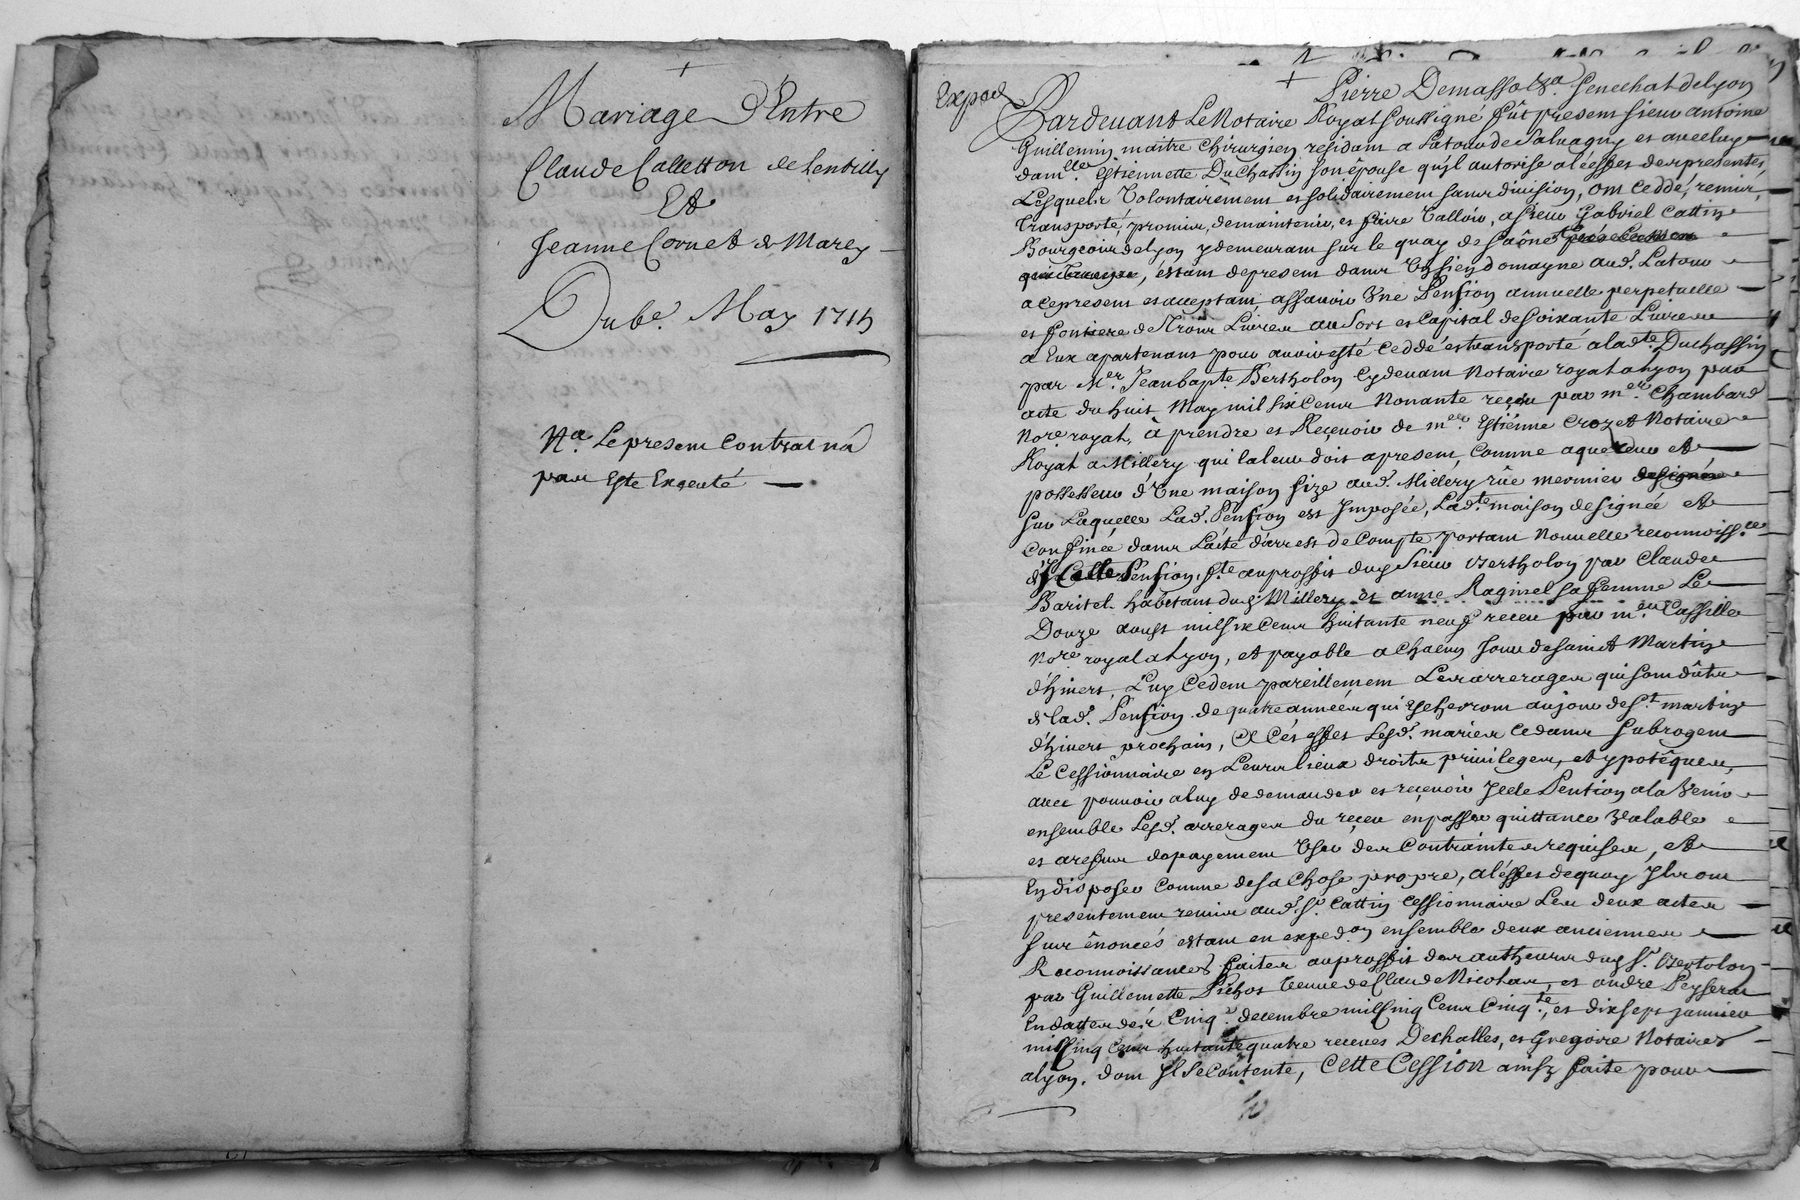 Mariage D'Entre
Claude Calletton de Lentilly
Et
Jeanne Cornet de Marcy
Du 6e. May 1715
Na. Le present Contrat na
pas Este Execute
Exped
Pierre Demasso &a. Senechal de Lyon
Pardevant Le Notaire Royal soussigné fût present sieur antoine
Guillemin maitre Chirurgien residant a Latour de Salvagny et avec luy
dam.lle Estiennette Duchassin son épouse qu'il autorise a léffet des presentes,
Lesquels Volontairement et solidairement sans division, ont Ceddé, remis,
transporté, promis, de maintenir, et faire Valloir, a sieur Gabriel Cattin
Bourgeois de Lyon y demeurant sur le quay de Saône
éstant depresent dans Un sien domayne aud. Latour
a ce present et acceptant assavoir Une Pension annuelle perpetuelle
et fonciere de Trois Livres au Sort et Capital de soixante Livres
a Eux apartenans pour avoir esté Ceddé et transporté a lad.te Duchassin
par Mer. Jean bapt.e Bertholon Cydevant Notaire royal a Lyon par
acte du huit May mil six Cens Nonante reçeu par me. Chambard
Nore. royal, à prendre et Recevoir de me. Estienne Crozet Notaire
Royal a Millery qui la leur doit apresent, Comme aquereur et
possesseur d'Une maison size aud. Millery rüe mermier
sur Laquelle Lad. Pension est Imposée, Lad.te maison designée et
Confinée dans Lacte d'arrest de Compte portant Nouvelle reconnoiss.ce
d'Icelle Pension, f.te au proffit dud. Sieur Bertholon par Claude
Baritel habitant dud. Millery et anne Raginel sa femme Le
Douze aoust mil six Cens huitante neuf receu par me. Cassille
Nore. royal a Lyon, et payable a Chacun Jour de saint Martin
d'hivers, Luy Cedent pareillement Les arrerages qui sont dûts
de lad. Pension de quatre années qui Escherront au jour de St. martin
d'hivers prochain, A Cés effets Lesd. mariés Cedans subrogent
Le Cessionnaire en Leurs lieux droits privileges, et ypotêques,
avec pouvoir a luy de demander et reçevoir Icelle Pention a la Venir
ensemble Lesd. arrerages du reçeu en passer quittance Valable
et a reffus de payement User des Contraintes requises, et
En disposer Comme de sa Chose propre, a léffet dequoy Ils ont
presentement remis aud. Sr. Cattin Cessionnaire Les deux actes
sus énoncés estant en exped.on ensemble deux anciennes
Reconnoissances faites au proffit des autheurs dud. Sr. Bertolon
par Guillemette Pichot Veuve de Claude Nicolas, et andre Peysseron
En dattes des Cinq.e decembre mil Cinq Cens Cinq.te, et dix sept janvier
mil Cinq Cens huitante quatre receues Deshalles, et Gregoire Notaires
a Lyon, dont Il se Contente, Cette Cession ainsy faite pour